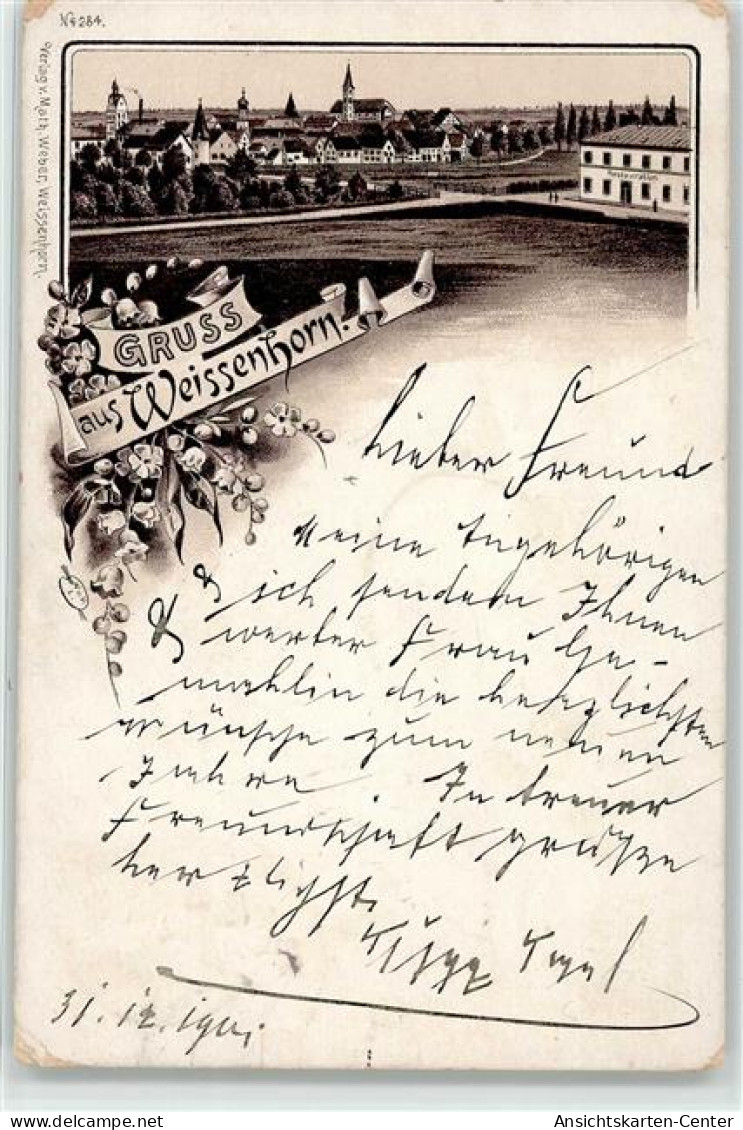 № 284.
Verlag v. Math. Weber, Weissenhorn.
Restauration
GRUSS
aus Weissenhorn.
Lieber Freund
Meine Angehörigen
& ich senden Ihnen
& werter Frau Ge-
mahlin die herzlichsten
Wünsche zum neuen
Jahre. In treuer
Freundschaft grüßen
herzlichst
31. 12. 1901.
Ansichtskarten-Center